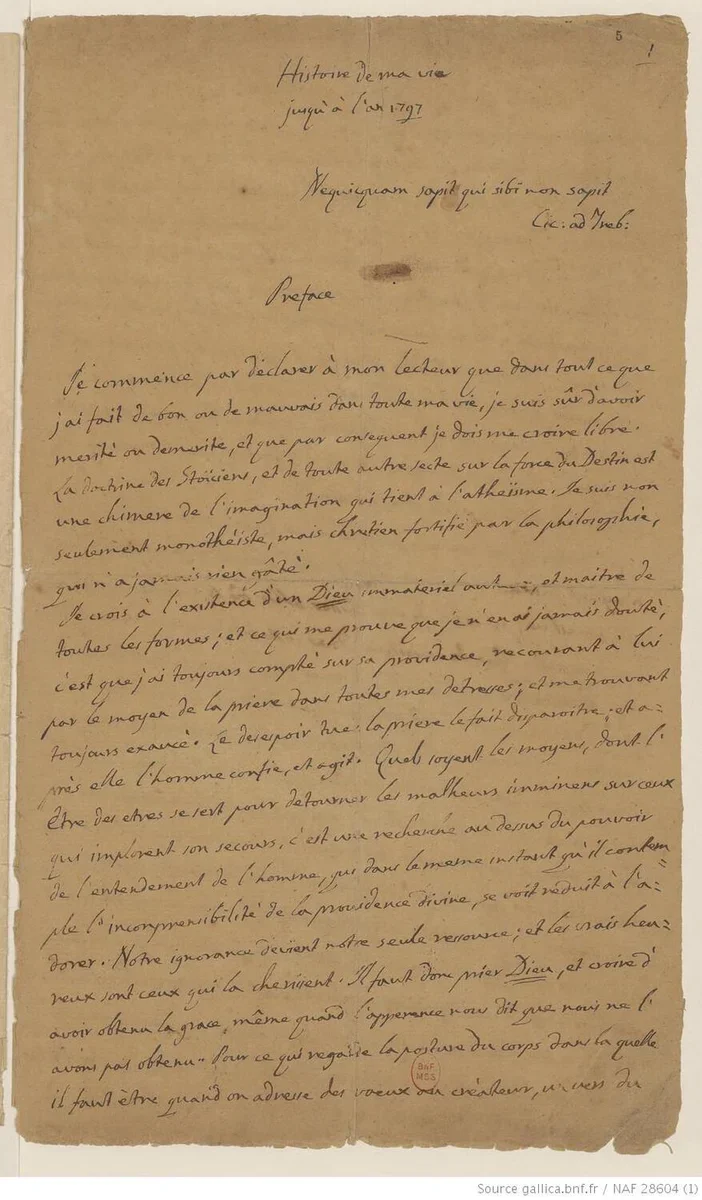 5
1
Histoire de ma vie
jusqu'à l'an 1797
Nequicquam sapit qui sibi non sapit
Cic: ad Treb:
Preface
Je commence par déclarer à mon lecteur que dans tout ce que
j'ai fait de bon ou de mauvais dans toute ma vie, je suis sûr d'avoir
merité ou demerité, et que par consequent je dois me croire libre.
La doctrine des Stoïciens, et de toute autre secte sur la force du Destin est
une chimere de l'imagination qui tient à l'atheïsme. Je suis non
seulement monothéiste, mais chretien fortifié par la philosophie,
qui n'a jamais rien gâté.
Je crois à l'existence d'un Dieu immateriel, et maitre de
toutes les formes; et ce qui me prouve que je n'en ai jamais douté,
c'est que j'ai toujours compté sur sa providence, recourant à lui
par le moyen de la priere dans toutes mes detresses; et me trouvant
toujours exaucé. Le desespoir tue: la priere le fait disparoitre; et a=
près elle l'homme confie, et agit. Quels soyent les moyens, dont l'
Être des etres se sert pour detourner les malheurs imminens sur ceux
qui implorent son secours, c'est une recherche au dessus du pouvoir
de l'entendement de l'homme, qui dans le meme instant qu'il contem=
ple l'incomprensibilité de la providence divine, se voit reduit à l'a=
dorer. Notre ignorance devient notre seule ressource; et les vrais heu=
reux sont ceux qui la cherissent. Il faut donc prier Dieu, et croire d'
avoir obtenu la grace, même quand l'apperence nous dit que nous ne l'
avons pas obtenu. Pour ce qui regarde la posture du corps dans la quelle
il faut être quand on adresse des voeux au créateur, un vers du
BnF
MSS
Source gallica.bnf.fr / NAF 28604 (1)